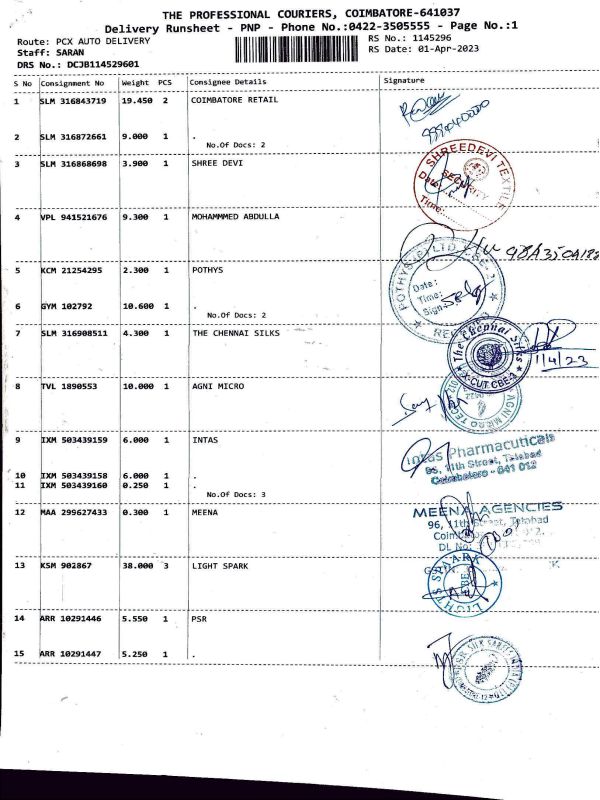 THE PROFESSIONAL COURIERS, COIMBATORE-641037
Delivery Runsheet - PNP - Phone No.:0422-3505555 - Page No.:1
Route: PCX AUTO DELIVERY
RS No.: 1145296
Staff: SARAN
RS Date: 01-Apr-2023
DRS No.: DCJB114529601
S No Consignment No Weight PCS Consignee Details Signature
1 SLM 316843719 19.450 2 COIMBATORE RETAIL
2 SLM 316872661 9.000 1 .
No.Of Docs: 2
3 SLM 316868698 3.900 1 SHREE DEVI
SHREEDEVI TEXTILE
SECURITY
Date:
Time:
4 VPL 941521676 9.300 1 MOHAMMMED ABDULLA
5 KCM 21254295 2.300 1 POTHYS
POTHYS (P) LTD
Date:
Time:
Sign:
6 GYM 102792 10.600 1 .
No.Of Docs: 2
7 SLM 316908511 4.300 1 THE CHENNAI SILKS
The Chennai Silks
X-CUT CBE-1
1/4/23
8 TVL 1890553 10.000 1 AGNI MICRO
AGNI MICRO TEC
9 IXM 503439159 6.000 1 INTAS
Intas Pharmacuticals
96, 11th Street, Tatabad
Coimbatore - 641 012
10 IXM 503439158 6.000 1 .
11 IXM 503439160 0.250 1 .
No.Of Docs: 3
12 MAA 299627433 0.300 1 MEENA
MEENA AGENCIES
96, 11th Street, Tatabad
DL No:
13 KSM 902867 38.000 3 LIGHT SPARK
14 ARR 10291446 5.550 1 PSR
15 ARR 10291447 5.250 1 .